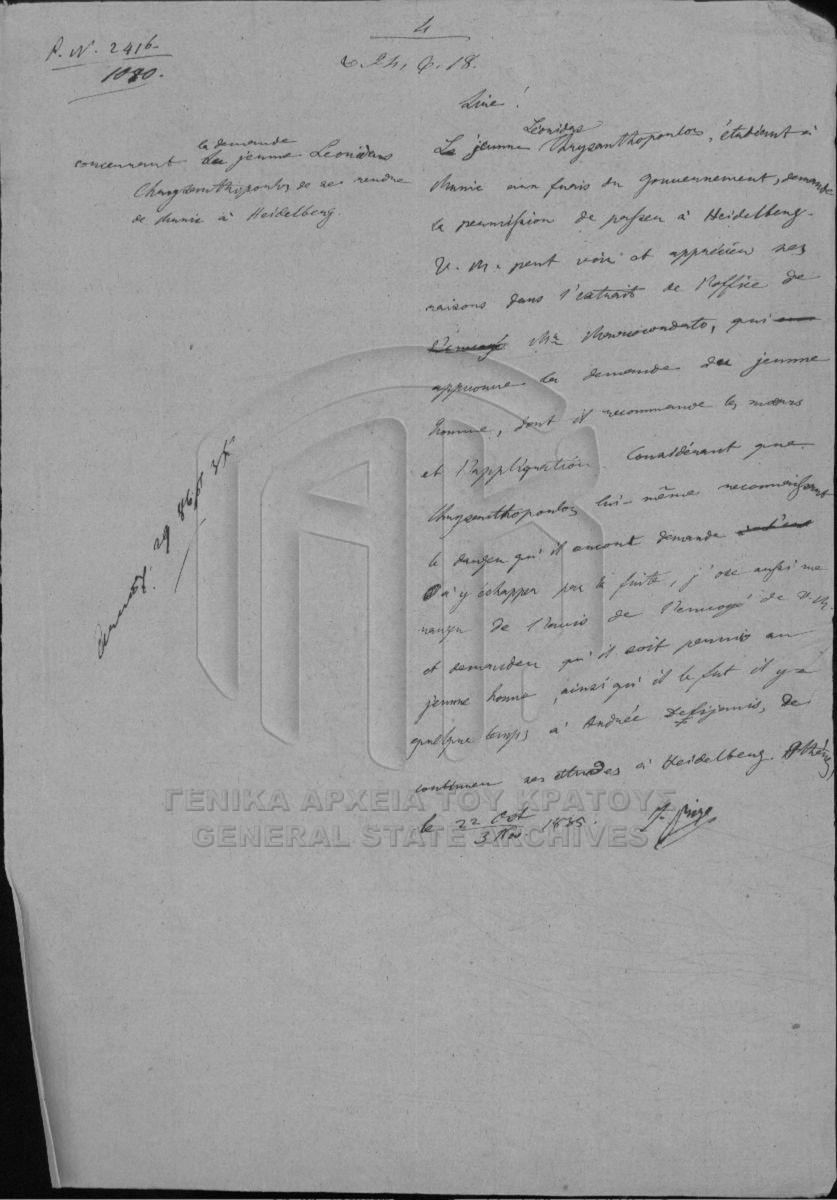 4
P. N. 2416
1080.
24, 6. 18.
Sire!
la demande
concernant du jeune Leonidas
Chrysanthopoulos de se rendre
de Munic à Heidelberg.
Léonidas
Le jeune Chrysanthopoulos, étudiant à
Munic aux frais du Gouvernement, demande
la permission de passer à Heidelberg.
V. M. peut voir et apprécier ses
raisons dans l'extrait de l'office de
l'envoyé Mr Maurocordato, qui
approuve la demande du jeune
homme, dont il recommande les mœurs
et l'appliquation. Considérant que
Chrysanthopoulos lui-même reconnaissant
le danger qu'il encourt demande
à y échapper par la fuite, j'ose aussi me
ranger de l'avis de l'envoyé de V. M.
et demander qu'il soit permis au
jeune homme, ainsi qu'il le fut il y a
quelque temps à Andrée, de
continuer ses études à Heidelberg. Athènes,
le 22 Oct
3 Nov. 1835.
J. Rizo
29
ΓΕΝΙΚΑ ΑΡΧΕΙΑ ΤΟΥ ΚΡΑΤΟΥΣ
GENERAL STATE ARCHIVES